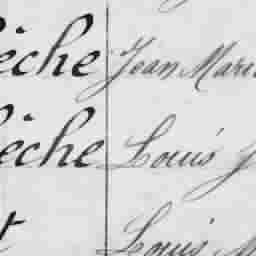 èche Jean Mari
èche Louis J
t Louis M